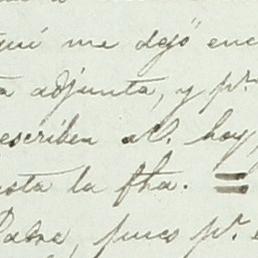 quí me dejó enc
a adjunta, y pr.
escriben al P. hoy,
ota la fha. =
Padre, pues pr. e